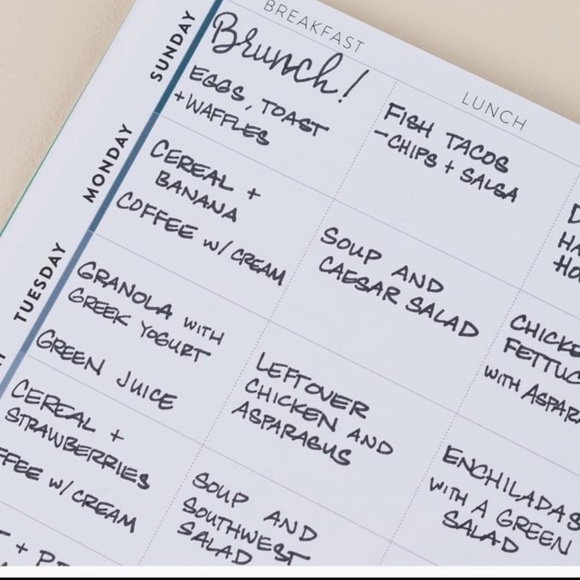 BREAKFAST
LUNCH
SUNDAY
Brunch!
EGGS, TOAST
+WAFFLES
FISH TACOS
-CHIPS + SALSA
MONDAY
CEREAL +
BANANA
COFFEE w/ CREAM
SOUP AND
CAESAR SALAD
CHICKE
FETTUC
WITH ASPARA
TUESDAY
GRANOLA WITH
GREEK YOGURT
GREEN JUICE
LEFTOVER
CHICKEN AND
ASPARAGUS
ENCHILADAS
WITH A GREEN
SALAD
CEREAL +
STRAWBERRIES
FFEE w/ CREAM
SOUP AND
SOUTHWEST
SALAD